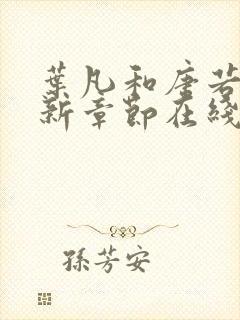 葉凡和唐若
新章節在綫
孫芳安